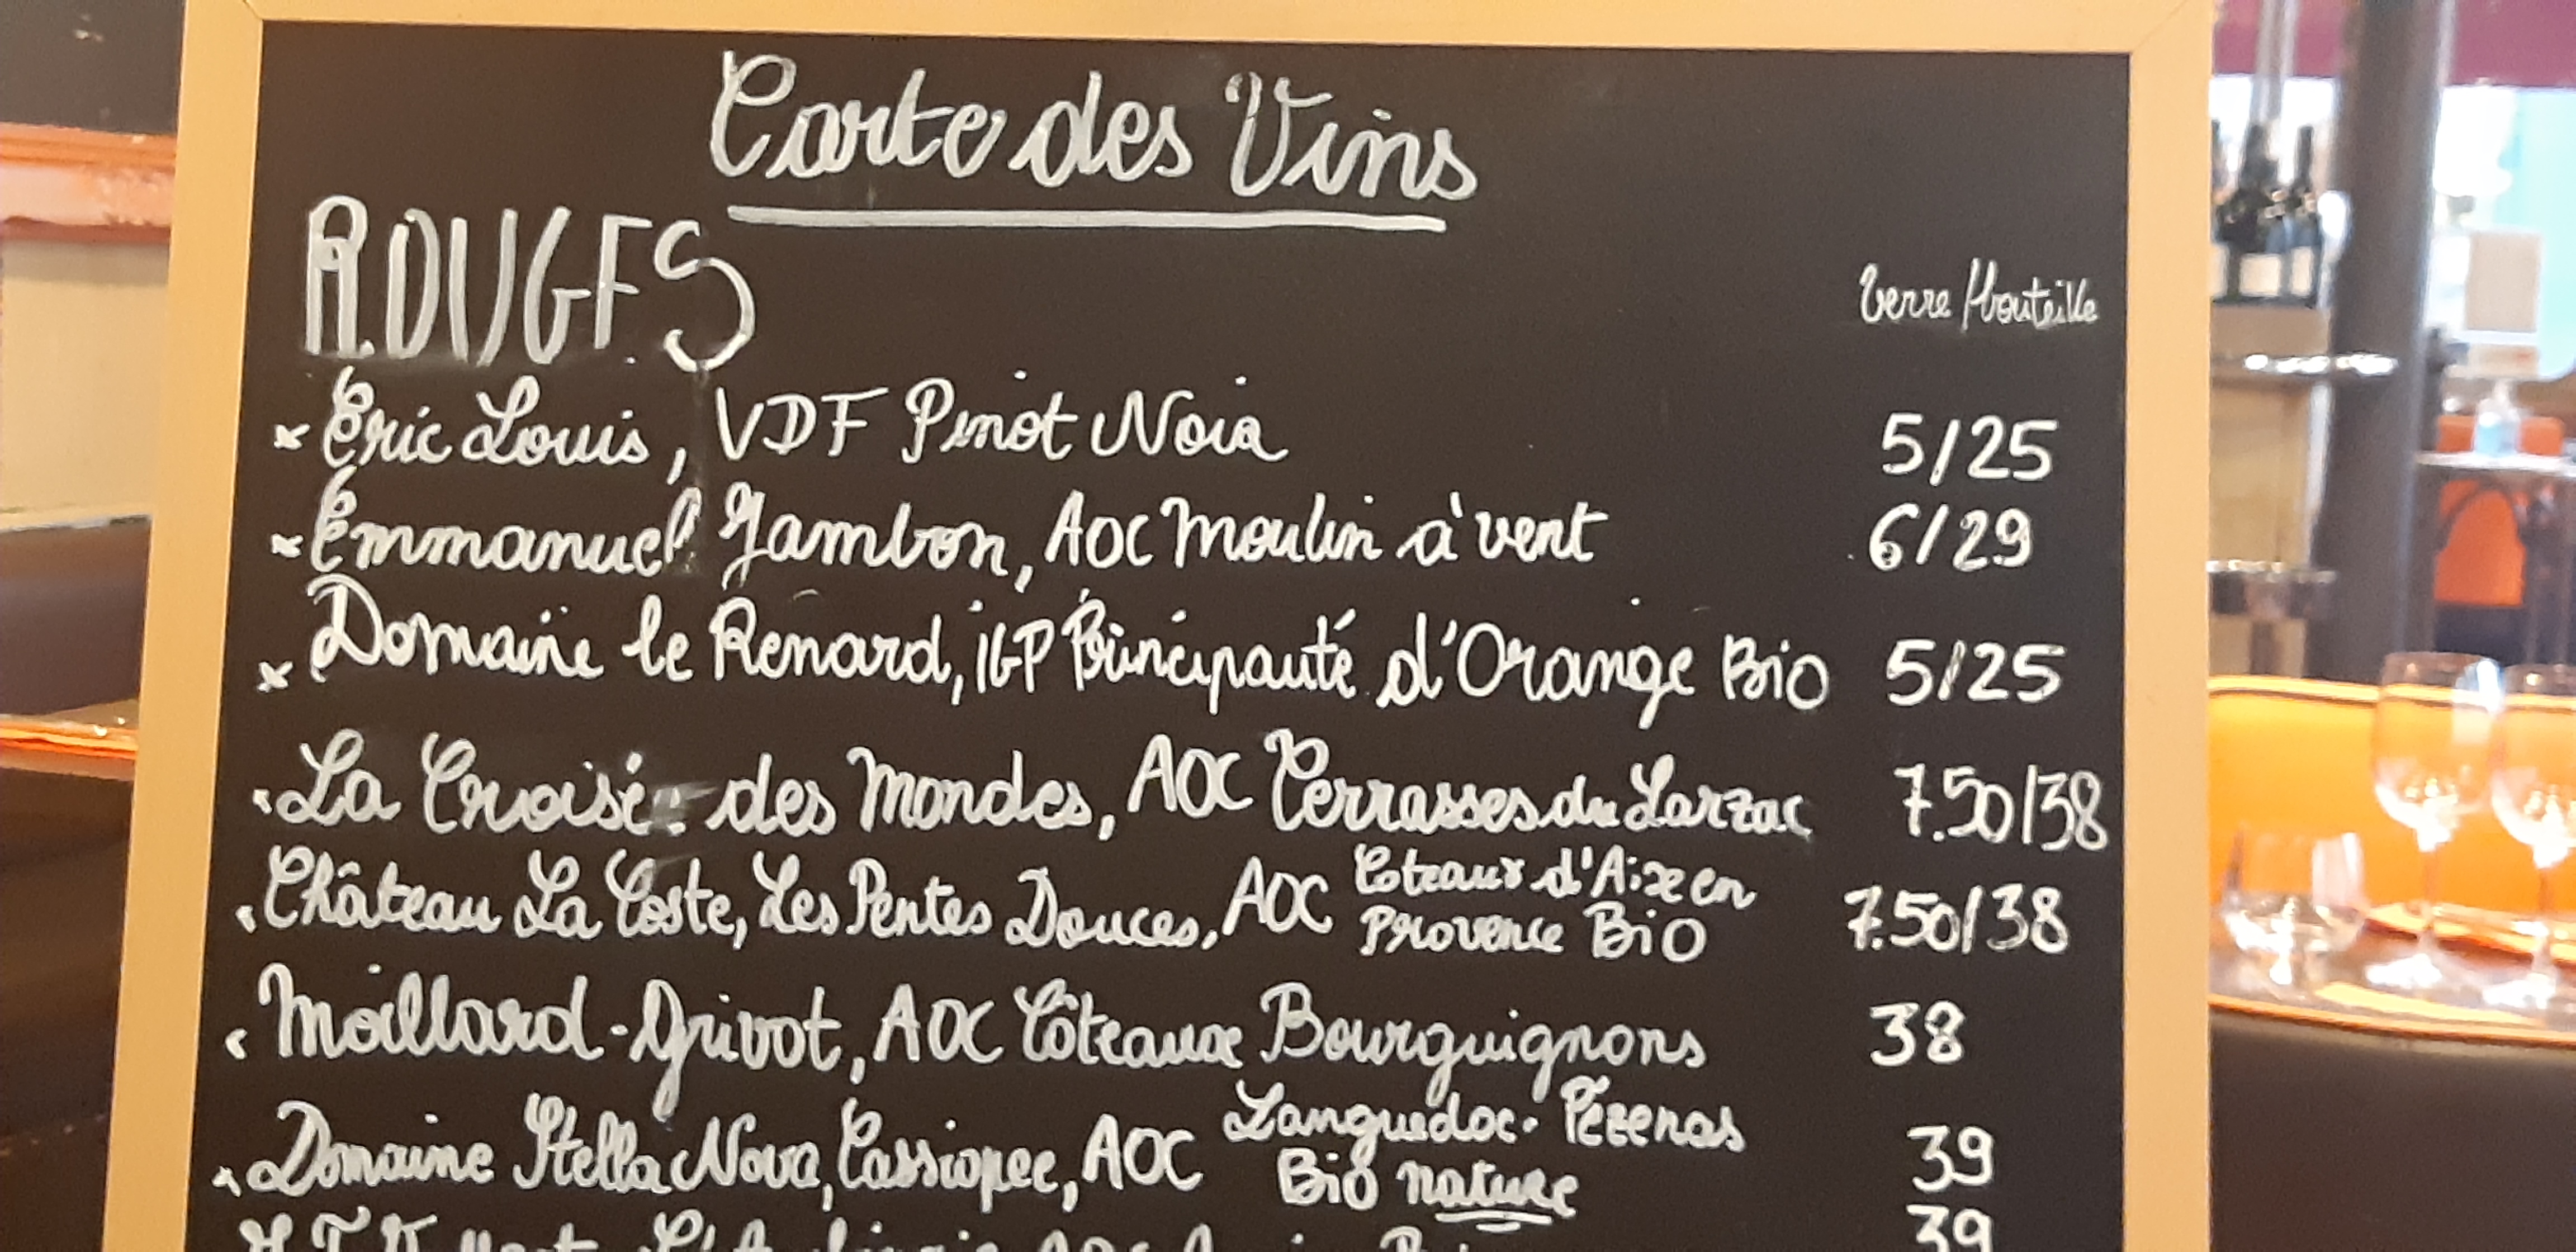 Carte des Vins
ROUGES
Verre/bouteille
* Eric Louis, VDF Pinot Noir 5/25
* Emmanuel Jambon, AOC Moulin à vent 6/29
* Domaine le Renard, IGP Principauté d'Orange Bio 5/25
La Croisé des Mondes, AOC Terrasses du Larzac 7.50/38
Château La Coste, Les Pentes Douces, AOC Coteaux d'Aix en Provence Bio 7.50/38
Moillard-Grivot, AOC Côteaux Bourguignons 38
Domaine Stella Nova, Cassiopee, AOC Languedoc-Pézenas Bio nature 39
39